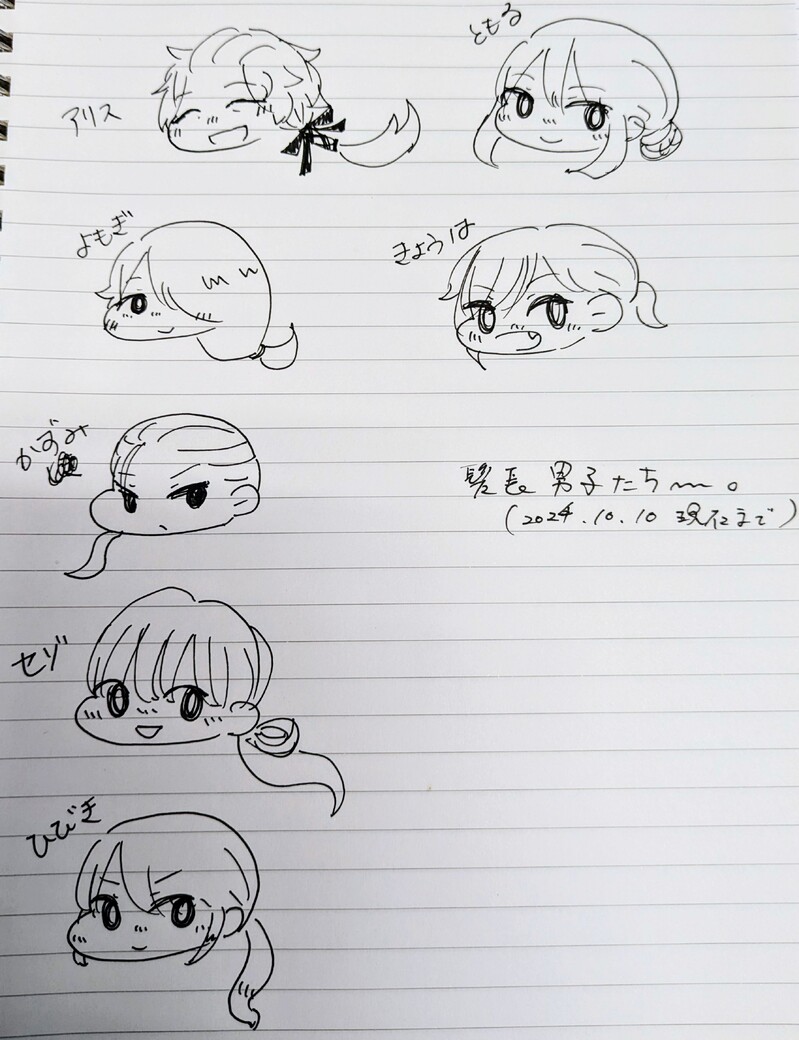 アリス
ともる
よもぎ
きょうは
かずみ
髪長男子たち〜。
(2024.10.10 現在まで)
セゾ
ひびき